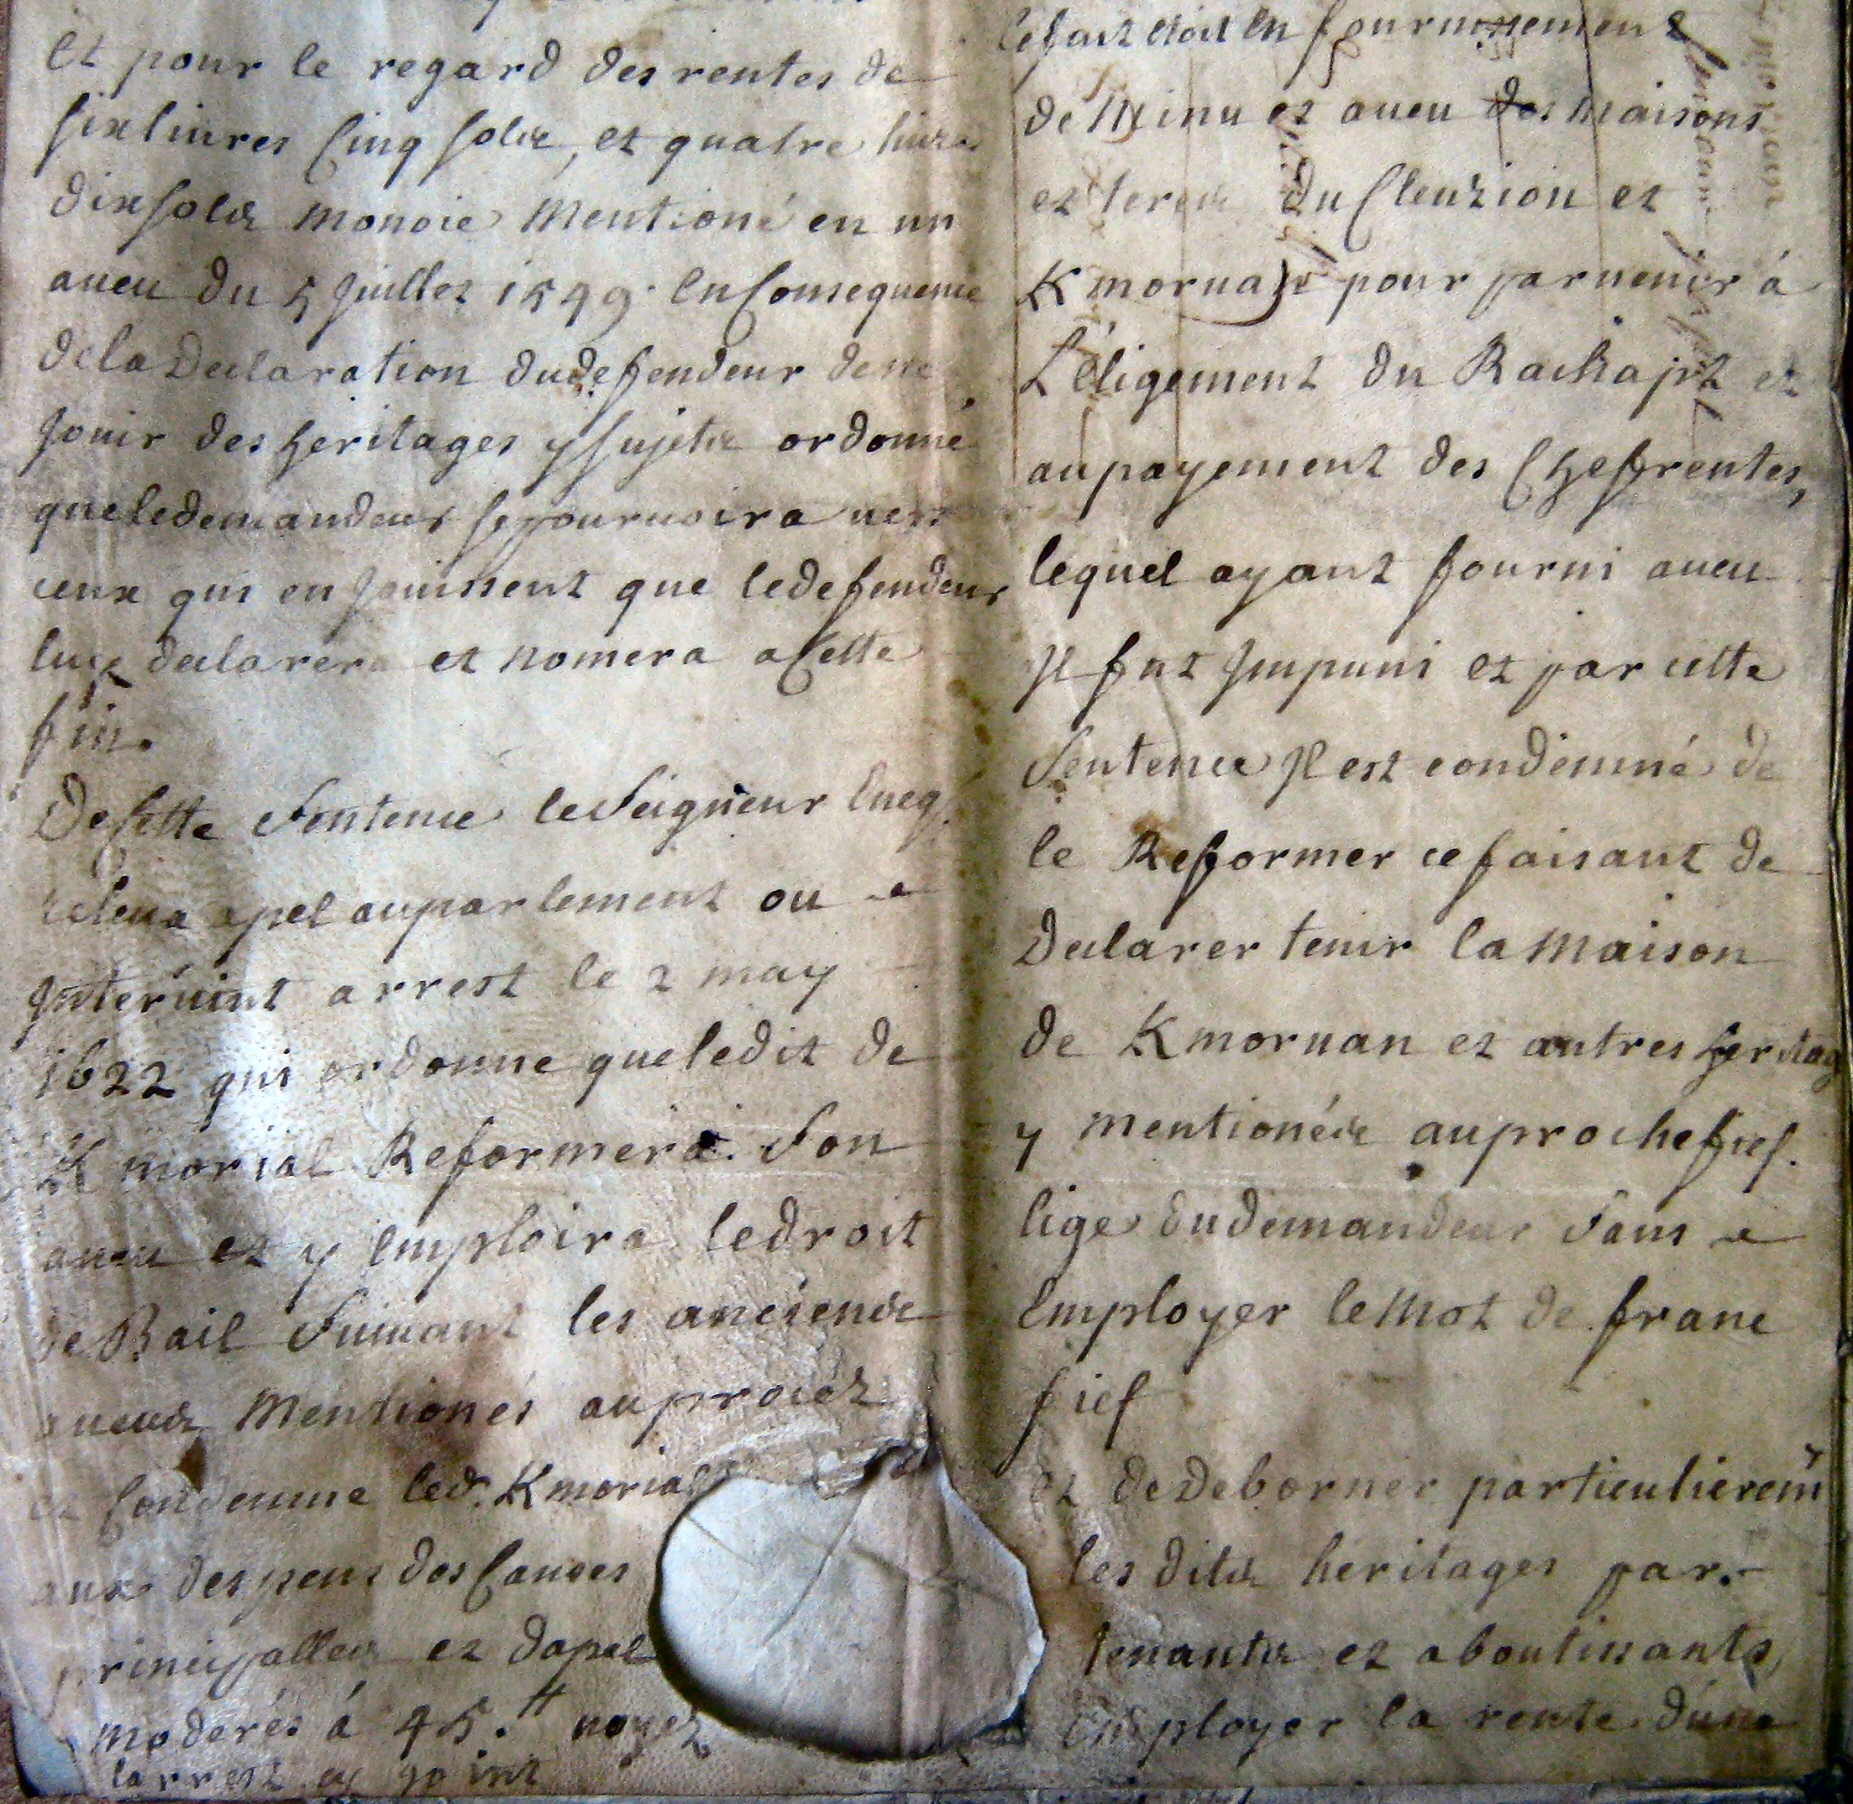 Et pour le regard des rentes de
six livres cinq solz, et quatre livres
dix solz monoie mentioné en un
aueu du 5 Juillet 1549. en Consequence
de la Declaration du defendeur de ne
Jouir des heritages y sujetz ordonné
que le demandeur se pouruoira vers
ceux qui en Jouissent que le defendeur
luy declarera et nomera a Cette
fin.
De Cette Sentence le Seigneur Eueq.
releua apel au parlement ou
Interuint arrest le 2 may
1622 qui ordonne que ledit de
K morial Reformera Son
aueu et y emploira le droit
de Bail Suiuant les anciens
aueux Mentionés au procéz
et Condemne led. Kmorial
aux despens des Causes
principalles et dapel
moderés á 45.tt voyez
larrest cy joint
le fait etoit en fournissement
de Minu et aueu des maisons
et teres du Cleuzion et
Kmoruan pour paruenir á
L'éligement du Rachapt et
au payement des Cheffrentes,
lequel ayant fourni aueu
Jl fut Jmpuni et par cette
Sentence Jl est condemné de
le Reformer ce faisant de
Declarer tenir la Maison
de Kmoruan et autres heritag
y mentionéz au proche fief.
lige du demandeur Sans
Employer le Mot de franc
fief
et de Deborner particulierem̃
les ditz héritages par.
tenantz et aboutissants,
Employer la rente d'une